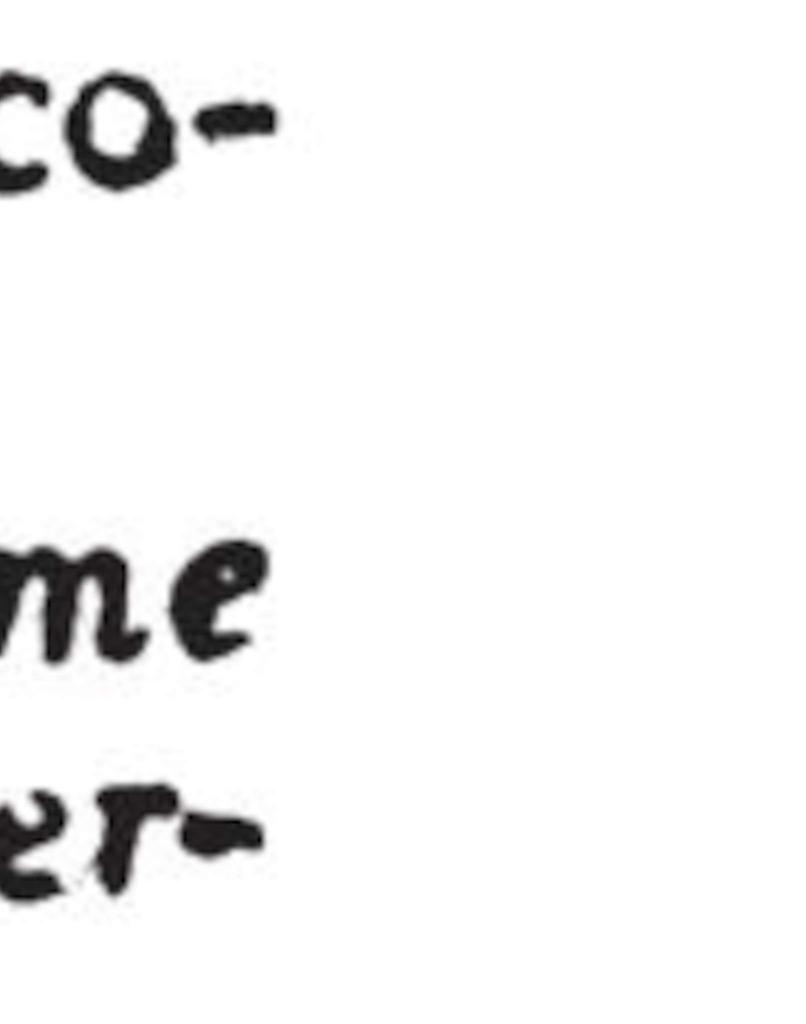 co-
me
er-